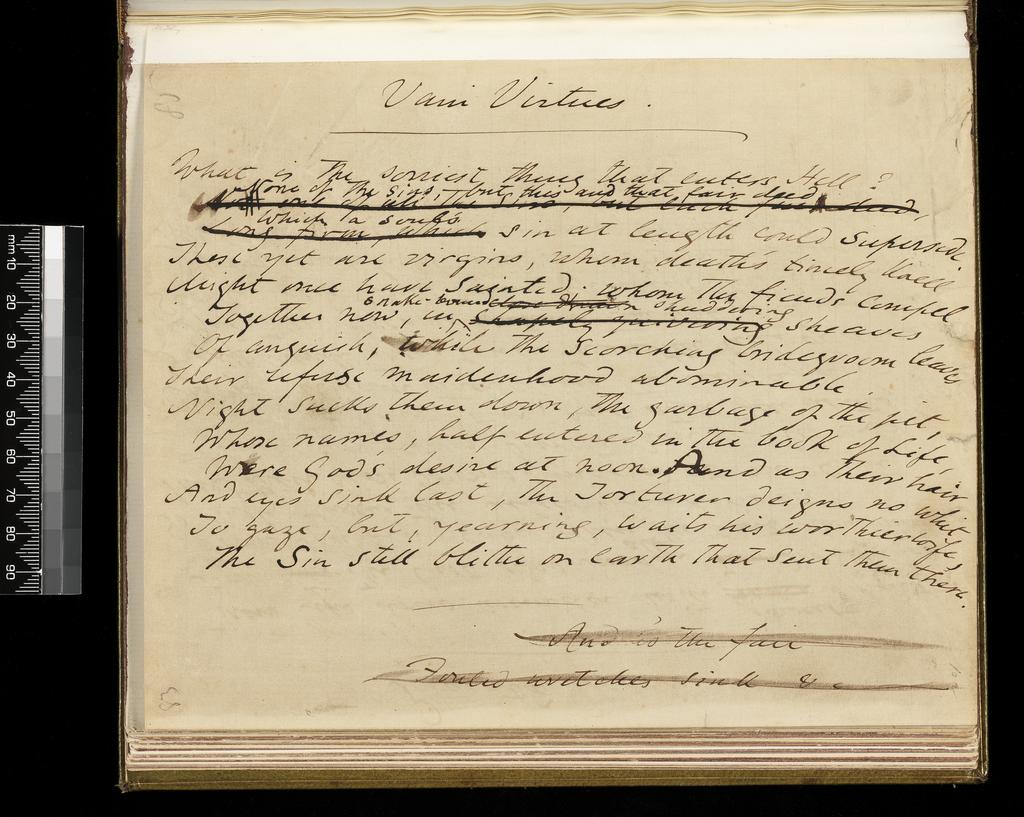 Vain Virtues.
What is the sorriest thing that enters Hell?
None of the sins, but this and that fair deed
Not one of all the sins, but each fair deed,
Which a soul's
Long from, which sin at length could supersede
These yet are virgins, whom death's timely knell
Might once have Sainted; whom the fiends compel
snake-bound shuddering
Together now, in sheaves
Of anguish, while the scorching bridegroom leaves
Their refuse maidenhood abominable.
Night sucks them down, the garbage of the pit,
Whose names, half entered in the book of Life,
Were God's desire at noon. And as their hair
And eyes sink last, the Torturer deigns no whit
To gaze, but, yearning, waits his worthier wife,
The Sin still blithe on earth that sent them there.
And is the fair
Fouled wretches sink &c
83
mm 10 20 30 40 50 60 70 80 90